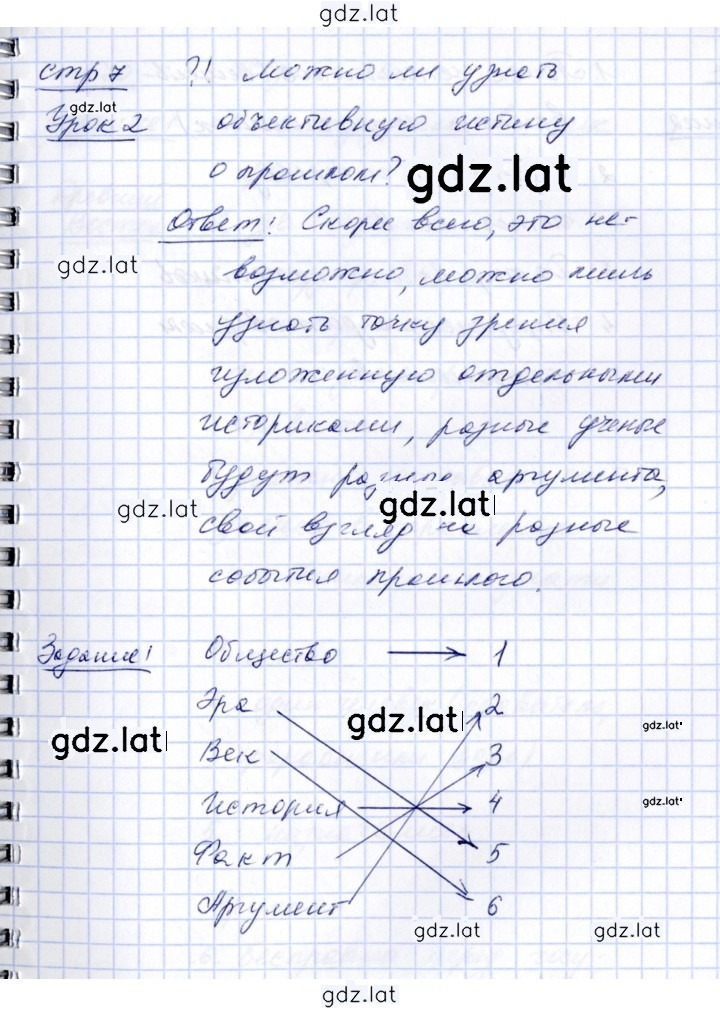 gdz.lat
стр 7 ?! Можно ли узнать
gdz.lat
Урок 2 объективную истину
о прошлом? gdz.lat
Ответ! Скорее всего, это не-
gdz.lat возможно, можно лишь
узнать точку зрения
изложенную отдельными
историками, разные ученые
будут разные аргумента,
gdz.lat gdz.lat
свой взгляд на разные
события прошлого.
Задание 1 Общество → 1
Эра 2
gdz.lat gdz.lat gdz.lat
Век 3
История 4 gdz.lat
Факт 5
Аргумент 6
gdz.lat gdz.lat
gdz.lat